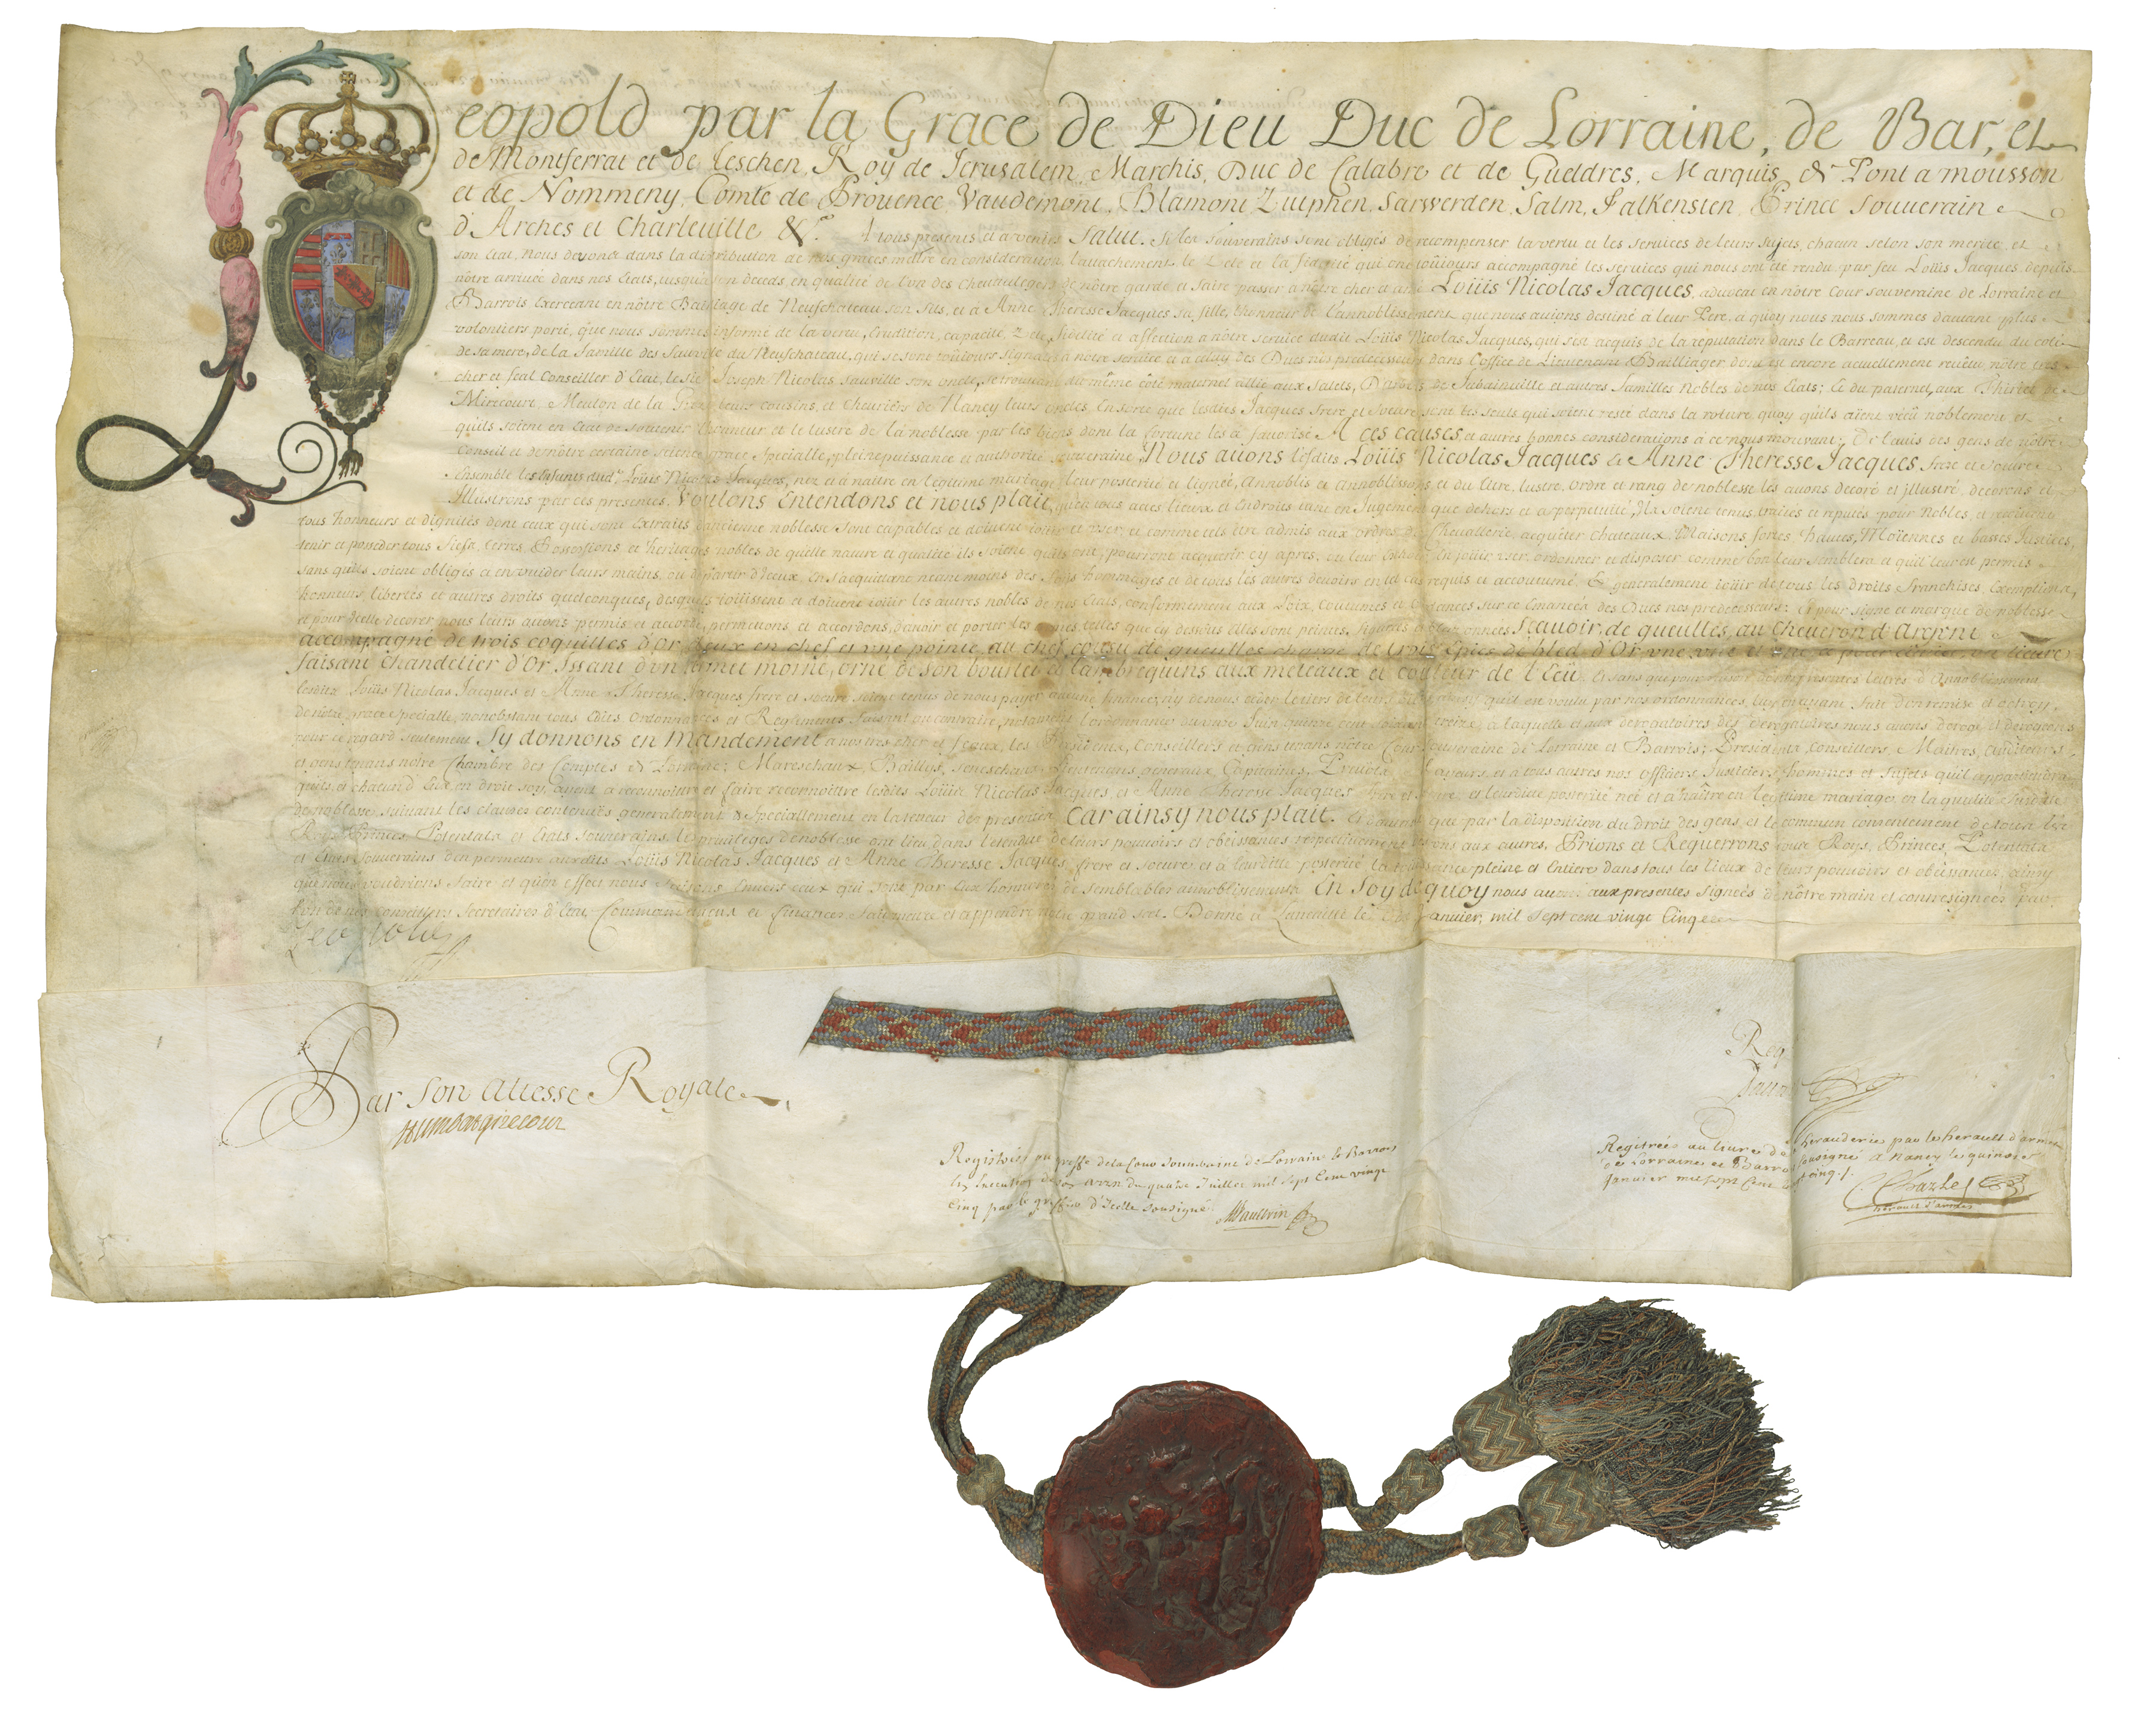 Leopold par la Grace de Dieu Duc de Lorraine, de Bar, et
de Montferrat et de Teschen, Roy de Jerusalem, Marchis, Duc de Calabre et de Gueldres, Marquis de Pont a mousson
et de Nommeny, Comte de Provence, Vaudemont, Blamont, Zutphen, Sarwerden, Salm, Falkenstein, Prince souverain
d'Arches et Charleville &c. A tous presents et a venir Salut. Si les souverains sont obligés de recompenser la vertu et les services de leurs sujets, chacun selon son merite, et
son Etat, nous devons dans la distribution de nos graces mettre en consideration, l'attachement, le Zele et la fidelité qui ont toûjours accompagné les services qui nous ont été rendu par feu Loüis Jacques, depuis
nôtre arrivée dans nos Etats, jusqu'a son deceds en qualité de l'un des chevaulegers de nôtre garde et faire passer a nôtre cher et amé Loüis Nicolas Jacques, advocat en nôtre Cour souveraine de Lorraine et
Barrois Exerceant en nôtre Bailliage de Neufchateau son fils, et a Anne Theresse Jacques sa fille, l'honneur de l'annoblissement que nous avions destiné a leur Pere, a quoy nous nous sommes d'autant plus
volontiers porté, que nous sommes informé de la vertu, Erudition, capacité, Zele, fidelité et affection a nôtre service dudit Loüis Nicolas Jacques, qui s'est acquis de la reputation dans le Barreau, et est descendu du coté
de sa mere, de la famille des Sauville du Neufchateau, qui se sont toûjours signalés a notre service et a celuy des Ducs nos predecesseurs dans l'office de Lieutenant Bailliager dont est encore actuellement revêtu nôtre tres
cher et feal Conseiller d'Etat, le Sr. Joseph Nicolas Sauville son oncle, se trouvant du même côté maternel allié aux Salets, de Jubainville et autres familles Nobles de nos Etats; Et du paternel, aux Thiriet de
Mirecourt, leurs cousins, et Cheuriers de Nancy leurs oncles, Ensorte que lesdits Jacques frere et soeur sont les seuls qui soient resté dans la roture quoy qu'ils aient vécû noblement et
qu'ils soient en Etat de soutenir l'honneur et le lustre de la noblesse par les biens dont la fortune les a favorisé A ces causes et autres bonnes considerations à ce nous mouvant; De l'avis des gens de nôtre
Conseil et de nôtre certaine science, grace Specialle, pleine puissance et authorité souveraine, Nous avons lesdits Loüis Nicolas Jacques et Anne Theresse Jacques, frere et soeur
Ensemble les Enfants dudt. Loüis Nicolas Jacques, nez et à naître en legitime mariage leur posterité et lignée, Annoblis et Annoblissons, et du titre, lustre, ordre et rang de noblesse les avons decoré et jllustré, decorons et
Jllustrons par ces presentes, Voulons Entendons et nous plait, qu'en tous actes lieux et Endroits tant en Jugement que dehors et a perpetuité, Ils soient tenus, traités et reputés pour Nobles, et
tous honneurs et dignités dont ceux qui sont Extraits d'ancienne noblesse sont capables et doivent joüir et vser, et comme tels être admis aux ordres de Chevallerie, acquêter chateaux, Maisons fortes, Hautes, Moïennes et basses Justices,
tenir et posseder tous fiefs, terres, Possessions et heritages nobles de quelle nature et qualité ils soient qu'ils ont, pourront acquerir cy apres, ou leur Echeoir, En joüir, vser, ordonner et disposer comme bon leur semblera et qu'il leur est permis
sans qu'ils soient obligés a en vuider leurs mains, ou départir d'Jceux, En s'acquittant neant moins des fois hommages et de tous les autres devoirs en tel cas requis et accoutumé. Et generalement joüir de tous les droits franchises, Exemptions,
honneurs, libertés et autres droits quelconques, desquels joüissent et doivent joüir les autres nobles de nos Etats, conformement aux Loix, Coutumes et Ordonnances sur ce Emanées des Ducs nos predecesseurs: Et pour signe et marque de noblesse
et pour d'celle decorer, nous leurs avons permis et accordé, permettons, et accordons, d'avoir et porter les armes, telles que cy dessous elles sont peintes, figurées et blazonnées Sçavoir, de gueulles, au Cheueron d'Argent
accompagné de trois coquilles d'Or deux en chef et vne pointe, au chef cousu de gueulles chargé de trois Epics de bled d'Or
faisant chandelier d'Or Jssant d'vn armet morné, orné de son bourlet et lambrequins aux metaux et couleur de l'Ecû. Et sans que pour raison des presentes lettres d'Annoblissement
lesdits Loüis Nicolas Jacques et Anne Theresse Jacques frere et soeur soient tenus de nous payer aucune finance, ny de nous ceder le tiers de leurs biens
de notre grace specialle, nonobstant tous Edits, Ordonnances et Reglements faisant au contraire, notament l'ordonnance du onze Juin quinze cent soixante treize, a laquelle et aux derogatoires des derogatoires nous avons derogé et derogeons
pour ce regard seulement Sy donnons en Mandement a nos tres cher et feaux, les Presidents, Conseillers et gens tenans nôtre Cour souveraine de Lorraine et Barrois; Presidents, Conseillers, Maitres, Auditeurs
et gens tenans notre Chambre des Comptes de Lorraine; Mareschaux, Baillys, Seneschaux, Lieutenans generaux, Capitaines, Prevots et a tous autres nos officiers Justiciers, hommes et sujets qu'il appartiendra
qu'ils et chacun d'Eux en droit soy, ayent a reconnoitre et faire reconnoitre lesdits Loüis Nicolas Jacques, et Anne Theresse Jacques frere et soeur et leurditte posterité née et a naître en legitime mariage, en la qualité susditte
de noblesse, suivant les clauses contenuës generalement & specialement en la teneur des presentes Car ainsy nous plait. Et d'autant que par la disposition du droit des gens, et le commun consentement de tous les
Roys, Princes Potentats et Etats souverains, le privileges de noblesse ont lieu dans l'etendue de leurs pouvoirs et obeissances respectivement les vns aux autres, Prions et Requerrons tous Roys, Princes, Potentats
et Etats souverains d'en permettre auxdits Loüis Nicolas Jacques et Anne Theresse Jacques frere et soeur, et a laditte posterité la jouissance pleine et Entiere dans tous les lieux de leurs pouvoirs et obeissances, ainsy
que nous voudrions faire et qu'en effect nous faisons Envers ceux qui sont par Eux honnorés de semblables annoblissements. En foy de quoy nous avons aux presentes signées de nôtre main et contresignées par
l'un de nos conseillers Secretaires d'Etat, Commandemens et finances fait mettre et appendre notre grand scel. Donné a Luneville le Janvier, mil sept cent vingt Cinq
Leopold
Par Son Altesse Royale
Humbert Girecour
Registrées au greffe de la Cour souveraine de Lorraine et Barrois
En Execution de son arrest du quatre Juillet mil sept Cent vingt
Cinq par le greffier d'Icelle sousigné
Reg
Registrées au livre de herauderie par le herault d'armes
de Lorraine et Barrois sousigné a Nancy le quinze
janvier mil sept Cent vingt cinq ./.
Charles
herault d'armes